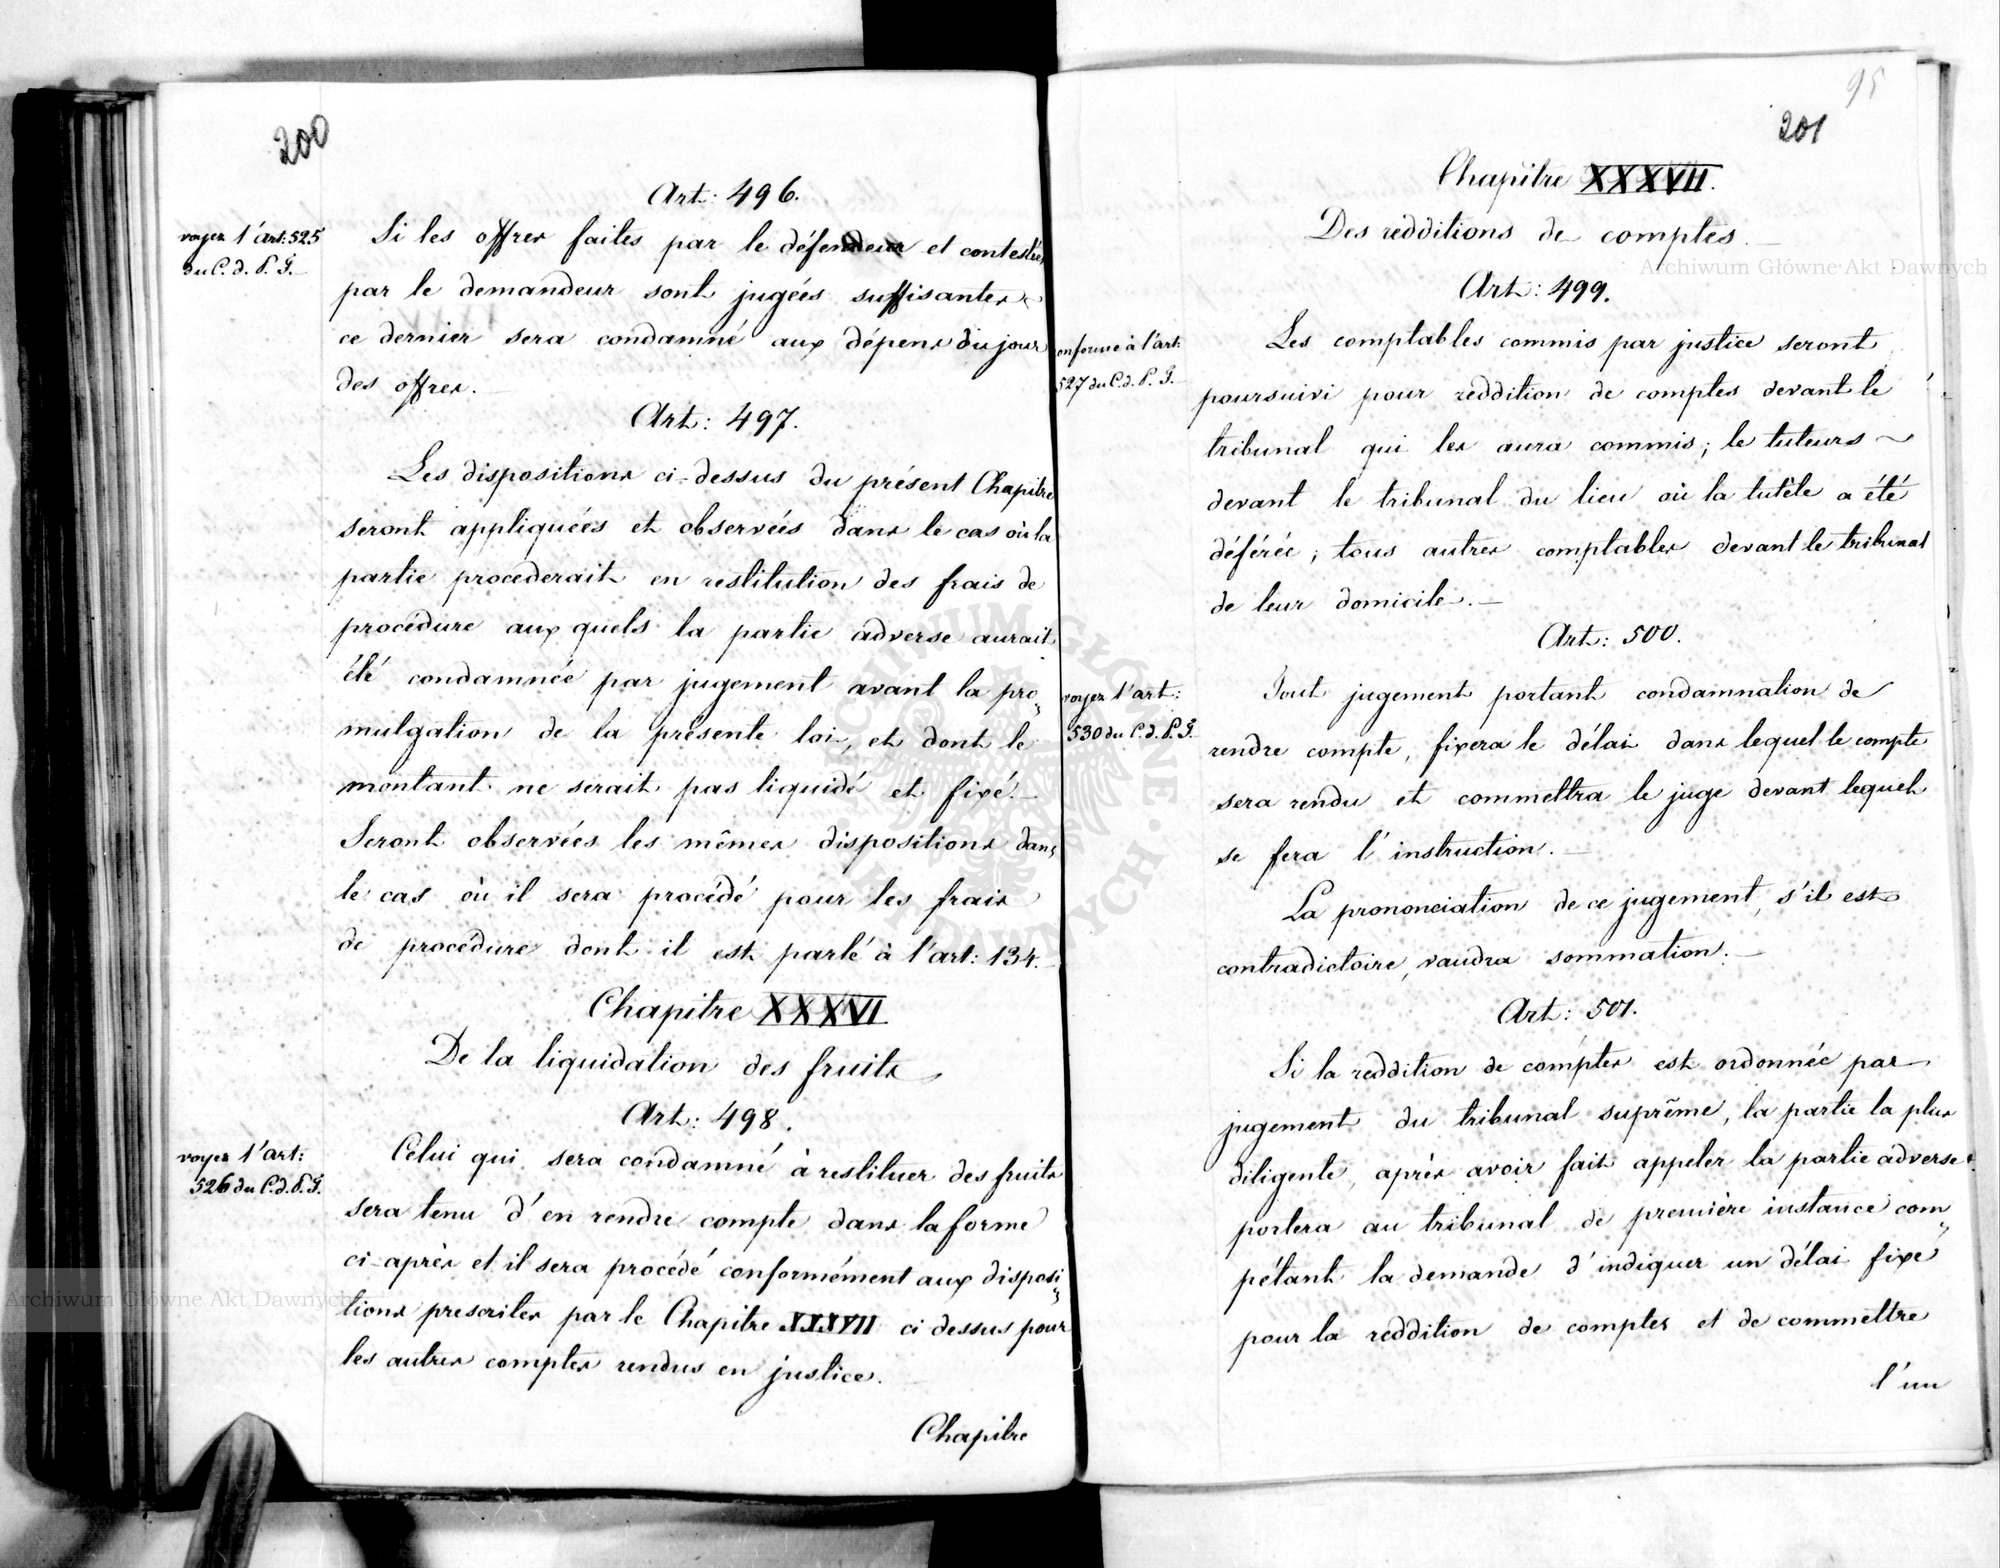 200
Art: 496.
voyez l'art: 525
du C. d. P. F.
Si les offres faites par le défendeur et contestées
par le demandeur sont jugées suffisantes
ce dernier sera condamné aux dépens du jour
des offres.
Art: 497.
Les dispositions ci-dessus du présent Chapitre
seront appliquées et observées dans le cas où la
partie procederait en restitution des frais de
procédure aux quels la partie adverse aurait
été condamnée par jugement avant la pro„
mulgation de la présente loi, et dont le
montant ne serait pas liquidé et fixé.
Seront observées les mêmes dispositions dans
le cas où il sera procédé pour les frais
de procédure dont il est parlé à l'art: 134.
Chapitre XXXVI
De la liquidation des fruits
Art: 498.
voyez l'art:
526 du C. d. P. F.
Celui qui sera condamné à restituer des fruits
sera tenu d'en rendre compte dans la forme
ci-après et il sera procédé conformément aux disposi„
tions prescrites par le Chapitre XXXVII ci dessus pour
les autres comptes rendus en justice.
Chapitre
95
201
Chapitre XXXVII.
Des redditions de comptes.
Art: 499.
onforme à l'art:
527 du C. d. P. F.
Les comptables commis par justice seront
poursuivi pour reddition de comptes devant le
tribunal qui les aura commis; le tuteurs
devant le tribunal du lieu où la tutèle a été
déférée; tous autres comptables devant le tribunal
de leur domicile.
Art: 500.
voyez l'art:
530 du C. d. P. F.
Tout jugement portant condamnation de
rendre compte, fixera le délai dans lequel le compte
sera rendu et commettra le juge devant lequel
se fera l'instruction.
La prononciation de ce jugement, s'il est
contradictoire, vaudra sommation.
Art: 501.
Si la reddition de comptes est ordonnée par
jugement du tribunal suprême, la partie la plus
diligente, après avoir fait appeler la partie adverse
portera au tribunal de première instance com„
pétant la demande d'indiquer un délai fixe
pour la reddition de comptes et de commettre
l'un
Archiwum Główne Akt Dawnych
Archiwum Główne Akt Dawnych
ARCHIWUM GŁÓWNE · AKT DAWNYCH ·